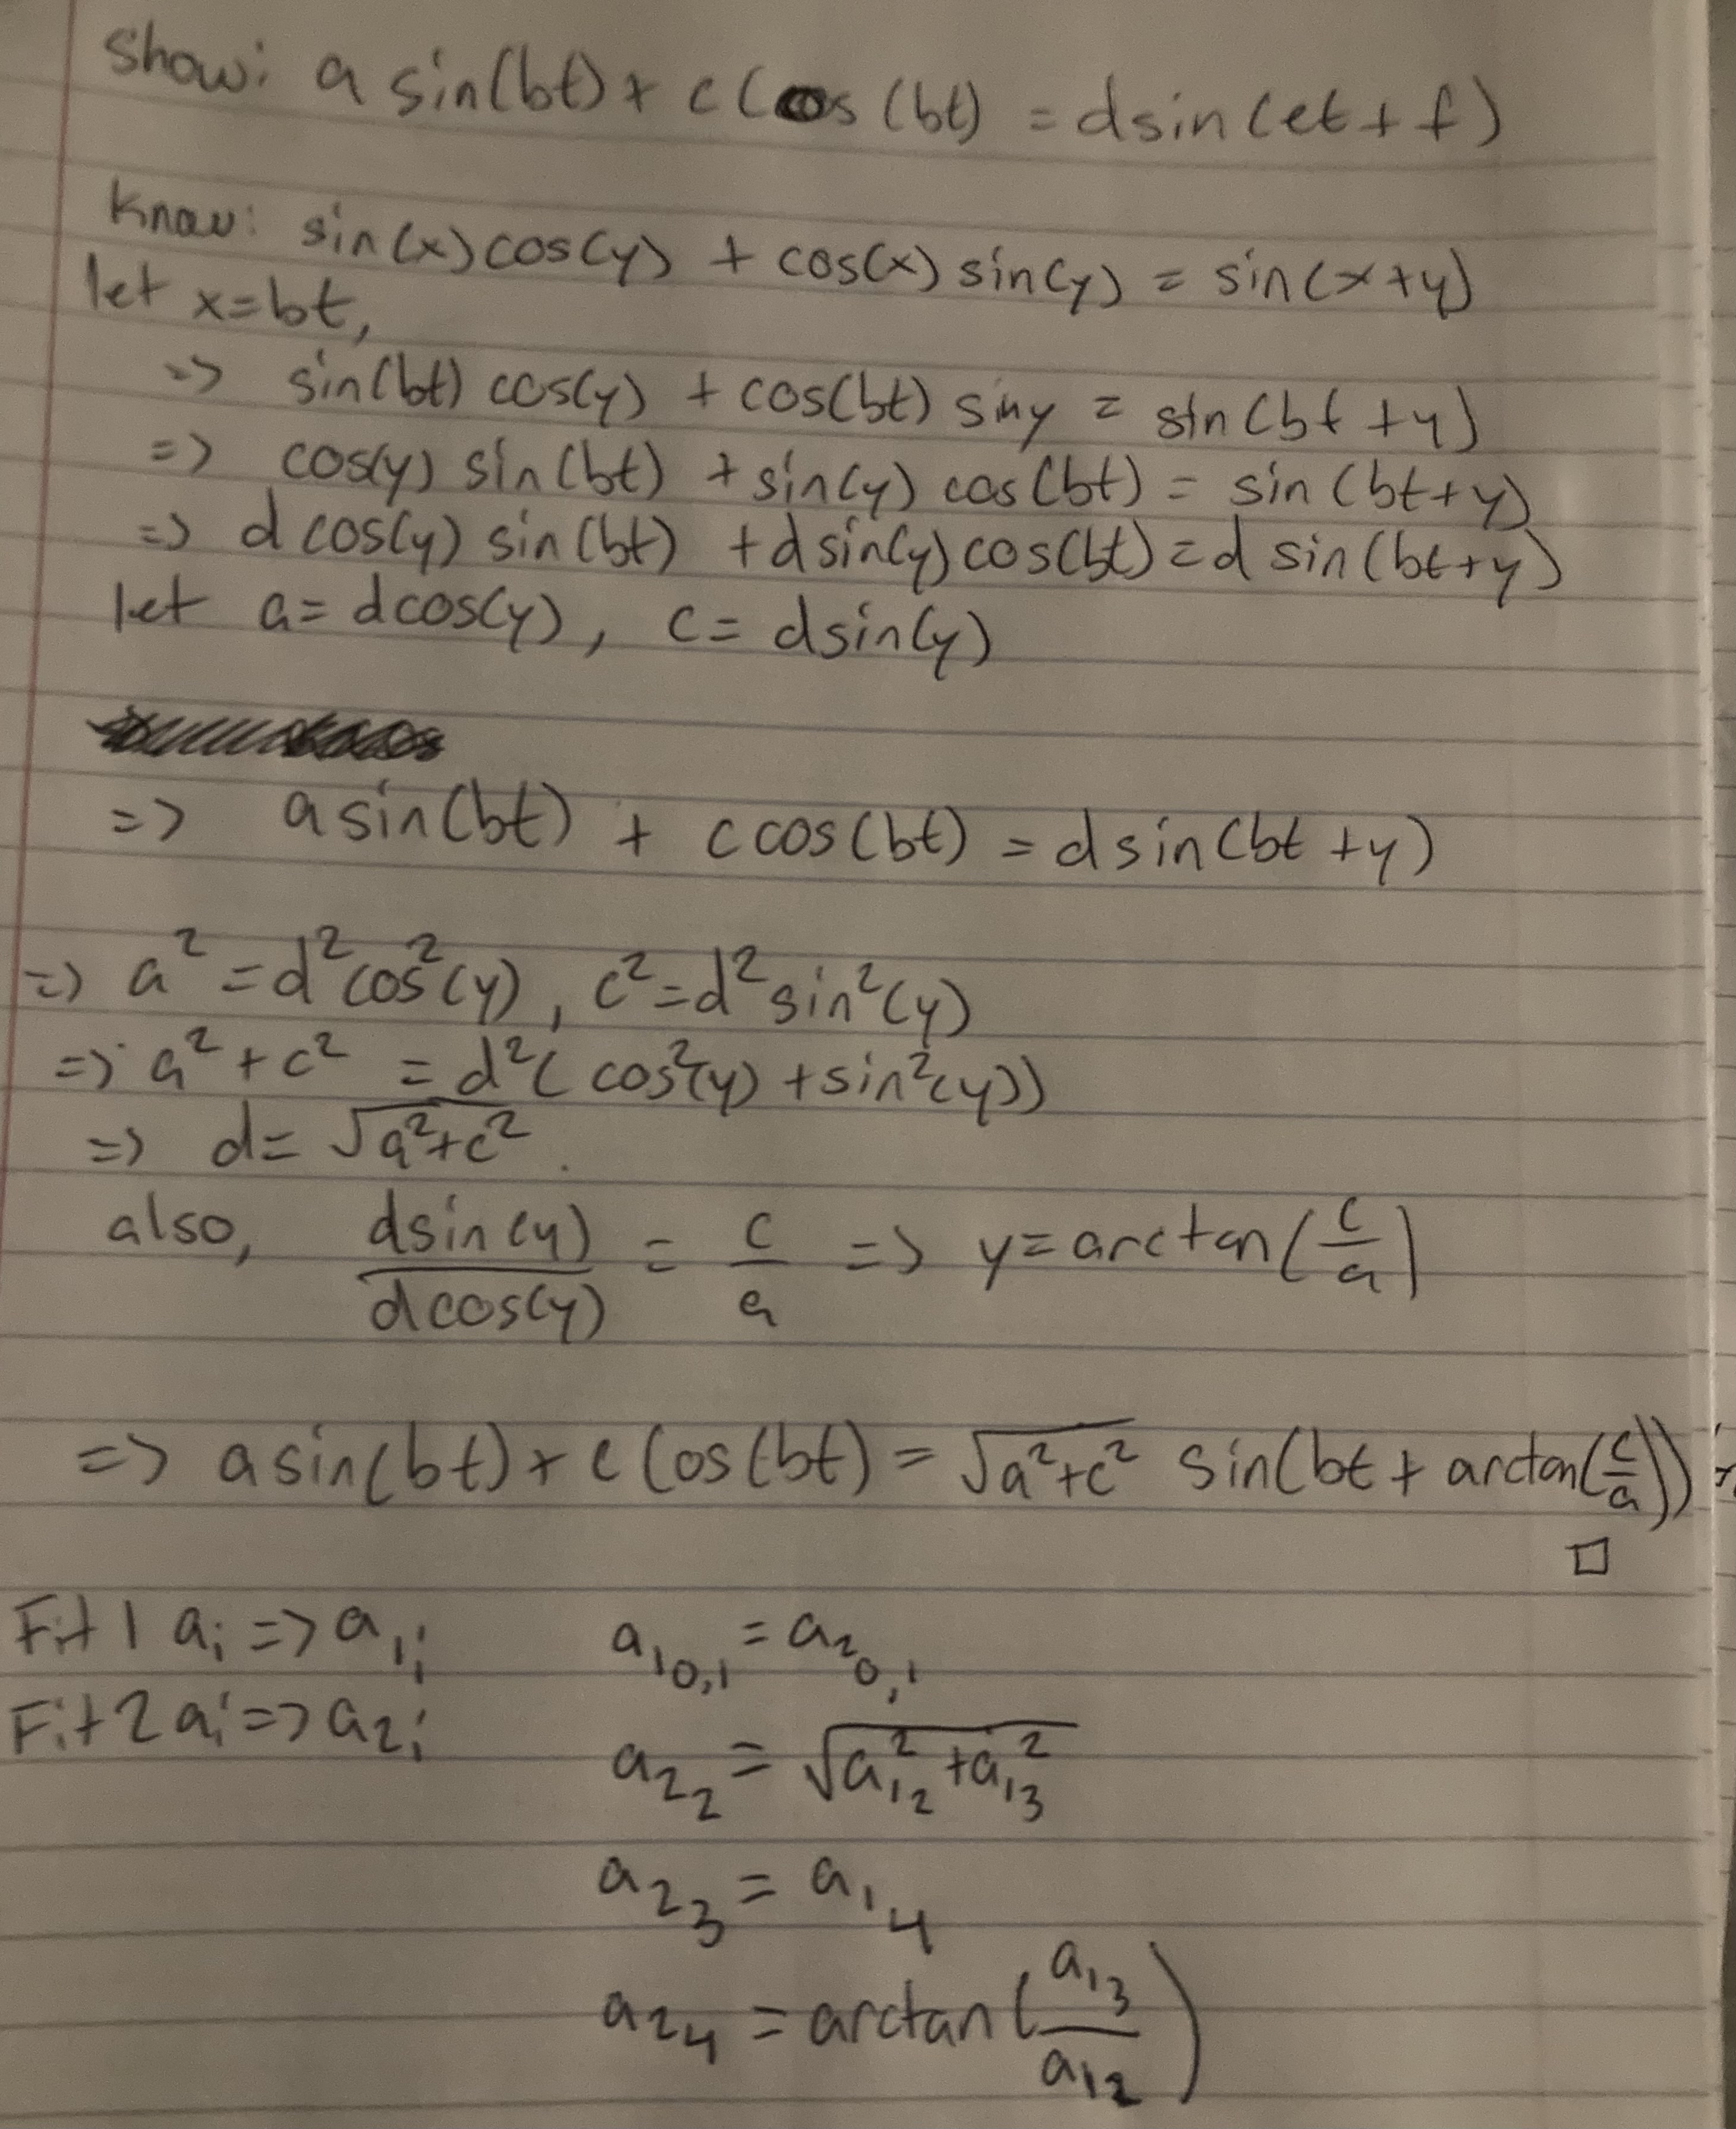 Show: a sin(bt) + c Cos (bt) = dsin(et + f)
Know: sin(x)cos(y) + cos(x) sin(y) = sin(x+y)
let x=bt,
=> sin(bt) cos(y) + cos(bt) siny = sin(bt +y)
=> cos(y) sin(bt) + sin(y) cos(bt) = sin(bt+y)
=> d cos(y) sin(bt) + d sin(y) cos(bt) = d sin(bt+y)
let a= dcos(y), c= dsin(y)
=> a sin(bt) + c cos(bt) = d sin(bt +y)
=> a² = d²cos²(y), c²=d²sin²(y)
=> a² + c² = d²( cos²(y) + sin²(y))
=> d= √(a²+c²).
also, dsin(y)/dcos(y) = c/a => y= arctan(c/a)
=> a sin(bt) + c Cos(bt) = √(a²+c²) sin(bt + arctan(c/a))
□
Fit 1 aᵢ => a₁ᵢ a₁₀,₁ = a₂₀,₁
Fit 2 aᵢ => a₂ᵢ
a₂₂ = √(a₁₂² + a₁₃²)
a₂₃ = a₁₄
a₂₄ = arctan(a₁₃/a₁₂)